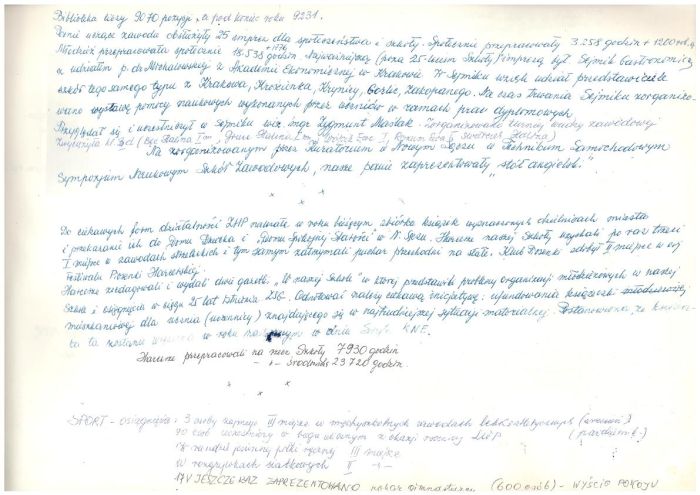 Biblioteka liczy 9070 pozycji, a pod koniec roku 9231.
Panie uczące zawodu obsłużyły 25 imprez dla społeczeństwa i szkoły. Społecznie przepracowały 3.258 godzin + 1200
Młodzież przepracowała społecznie 18.538 godzin. Najważniejszą (poza 25-leciem Szkoły) imprezą był Sejmik Gastronomiczny
z udziałem p. dr Michałowskiej z Akademii Ekonomicznej w Krakowie. W Sejmiku wzięli udział przedstawiciele
szkół tego samego typu z Krakowa, Krzecinka, Krynicy, Gorlic, Zakopanego. Na czas trwania Sejmiku zorganizo-
wano wystawę pomocy naukowych wykonanych przez uczniów w ramach prac dyplomowych.
Przyglądał się i uczestniczył w Sejmiku wiz. mgr Zygmunt Maślak. Zorganizowano turniej nauki zawodowej
Na zorganizowanym przez Kuratorium w Nowym Sączu w Technikum Samochodowym
Sympozjum Naukowym Szkół Zawodowych, nasze panie zaprezentowały "stół angielski".
x x
x
Do ciekawych form działalności ZHP należała w roku bieżącym zbiórka książek wyznaczonych dzielnicach miasta
i przekazanie ich do Domu Dziecka i "Domu Spokojnej Starości" w N. Sączu. Harcerze naszej Szkoły uzyskali po raz trzeci
I miejsce w zawodach strzeleckich i tym samym zatrzymali puchar przechodni na stałe. Klub Piosenki zdobył II miejsce w
Festiwalu Piosenki Harcerskiej.
Harcerze zredagowali i wydali dwie gazetki "W naszej Szkole" w której przedstawili problemy organizacji młodzieżowych w naszej
Szkole i osiągnięcia w ciągu 25 lat istnienia ZSG. Odnotować należy ciekawą inicjatywę: ufundowania książeczki
mieszkaniowej dla ucznia (uczennicy) znajdującego się w najtrudniejszej sytuacji materialnej. Postanowiono, że książecz-
ka ta zostanie w roku następnym w dniu Święta KNE.
Harcerze przepracowali na rzecz Szkoły 7930 godzin
- " - środowiska 23720 godzin.
x x
x
SPORT - osiągnięcia: 3 osoby zajmują III miejsce w międzyszkolnych zawodach lekkoatletycznych
70 osób uczestniczy w biegu ulicznym z okazji rocznicy
piłki ręcznej III miejsce
w rozgrywkach siatkowych II - " -
JESZCZE RAZ ZAPREZENTOWANO pokaz gimnastyczny (600 osób) - WYŚCIG POKOJU